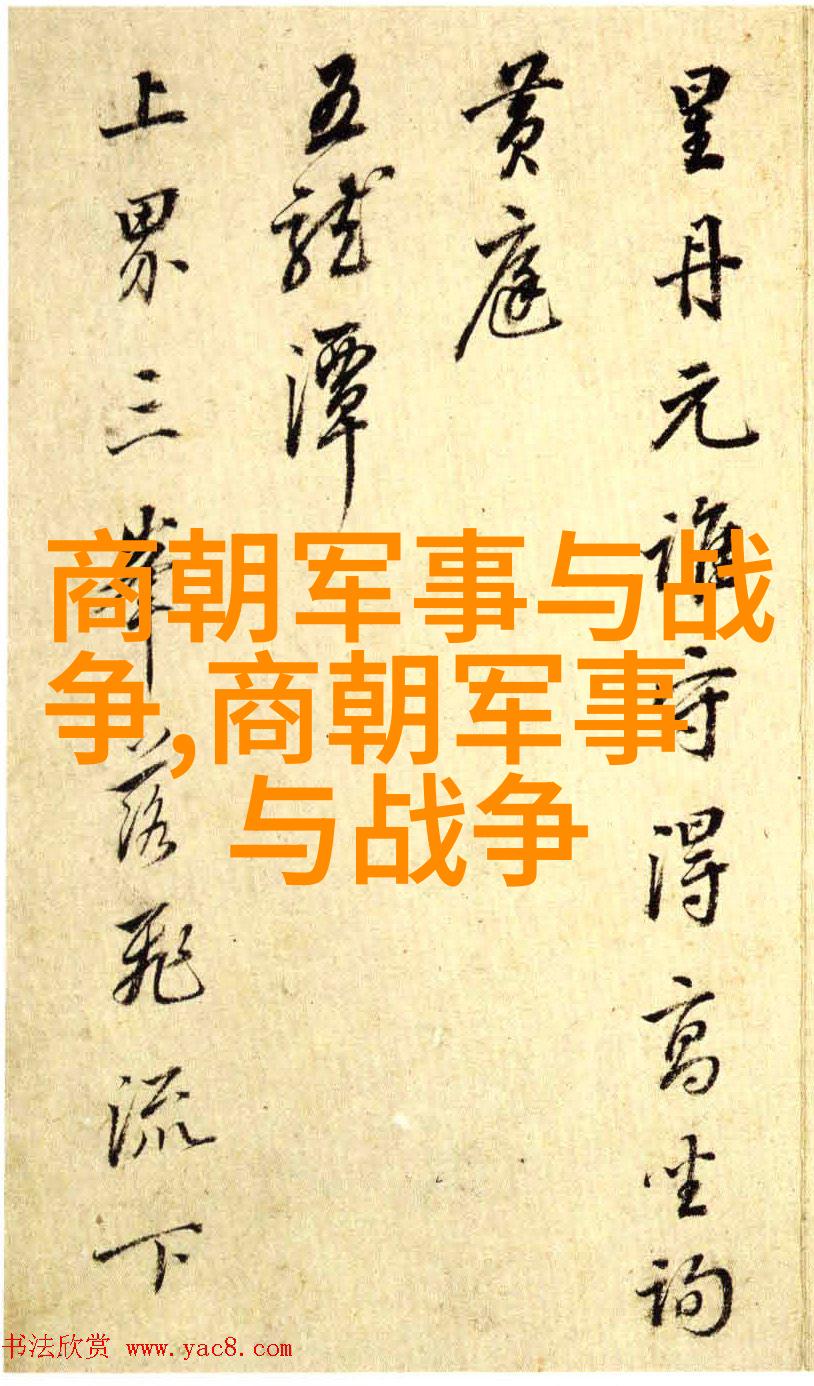 星丹元谁守得高坐詢
黄庭
五龍潭
上界三峯落飛流下
商朝军事与战
争,商朝军事
与战争
书法欣赏 www.yac8.com